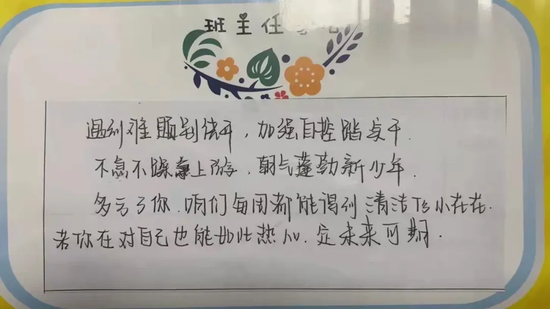 班主任
遇到难题别绕开，加强自控踏实干.
不急不躁争上游，朝气蓬勃新少年.
多亏了你，咱们每周都能得到清洁
若你在对自己也能如此热心，定未来可期.